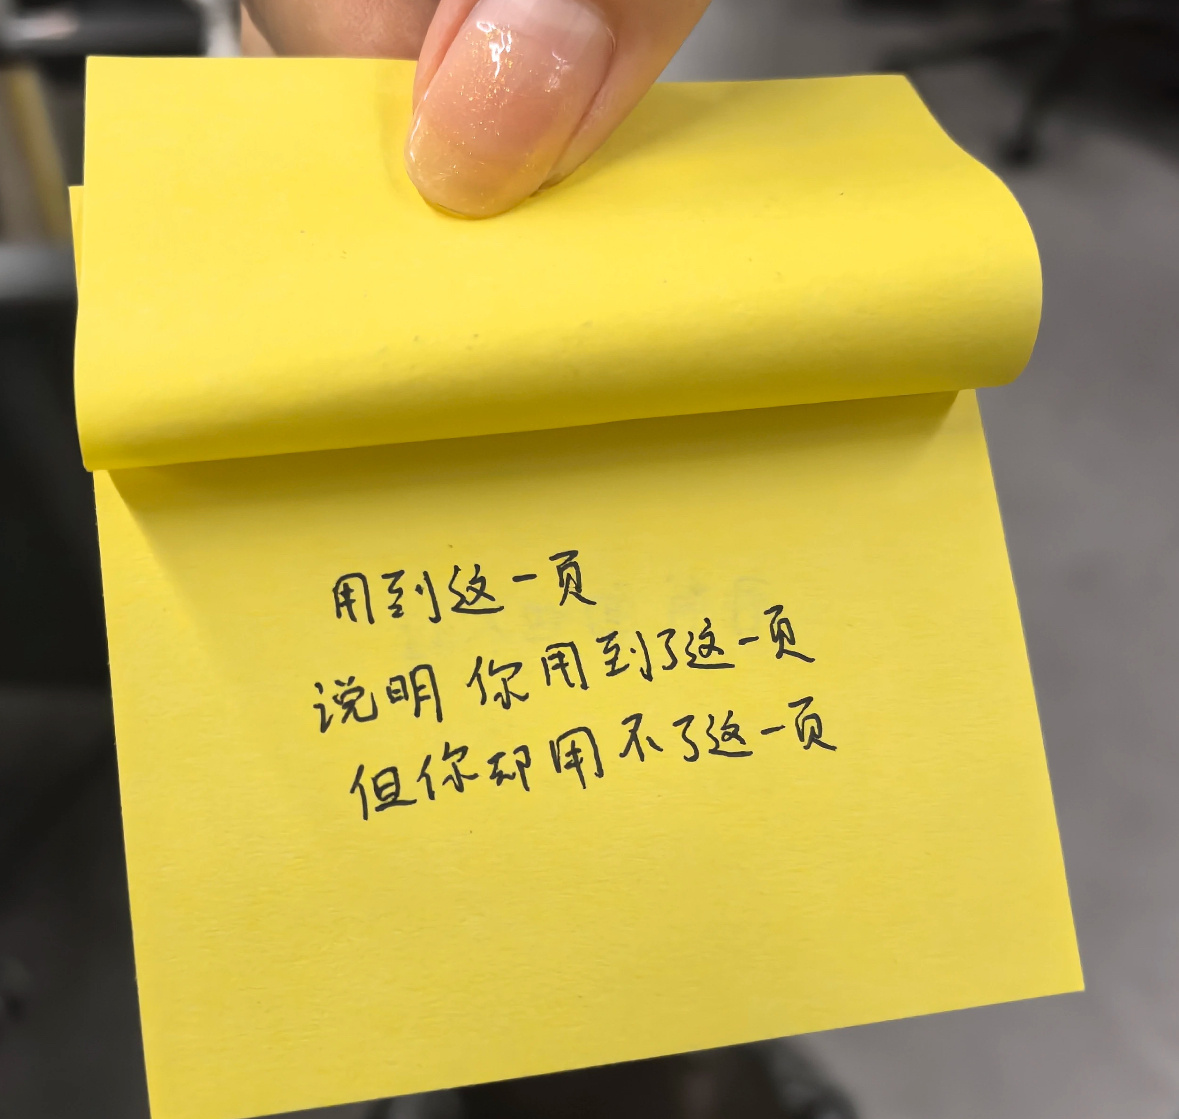 用到这一页
说明你用到了这一页
但你却用不了这一页